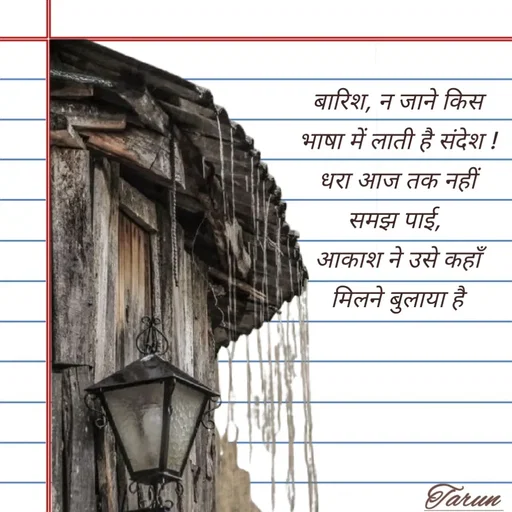 बारिश, न जाने किस
भाषा में लाती है संदेश !
धरा आज तक नहीं
समझ पाई,
आकाश ने उसे कहाँ
मिलने बुलाया है
Tarun